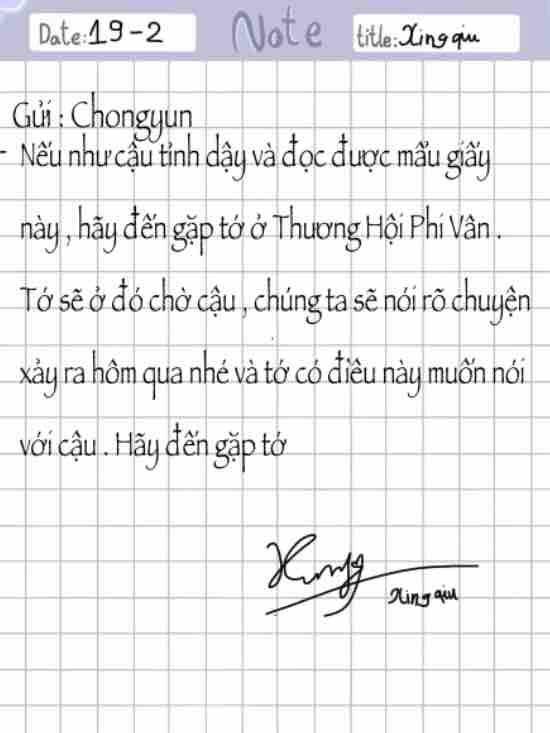 Date: 19-2 Note title: Xing qiu
Gửi : Chongyun
- Nếu như cậu tỉnh dậy và đọc được mẩu giấy
này , hãy đến gặp tớ ở Thương Hội Phi Vân .
Tớ sẽ ở đó chờ cậu , chúng ta sẽ nói rõ chuyện
xảy ra hôm qua nhé và tớ có điều này muốn nói
với cậu . Hãy đến gặp tớ
Xing qiu